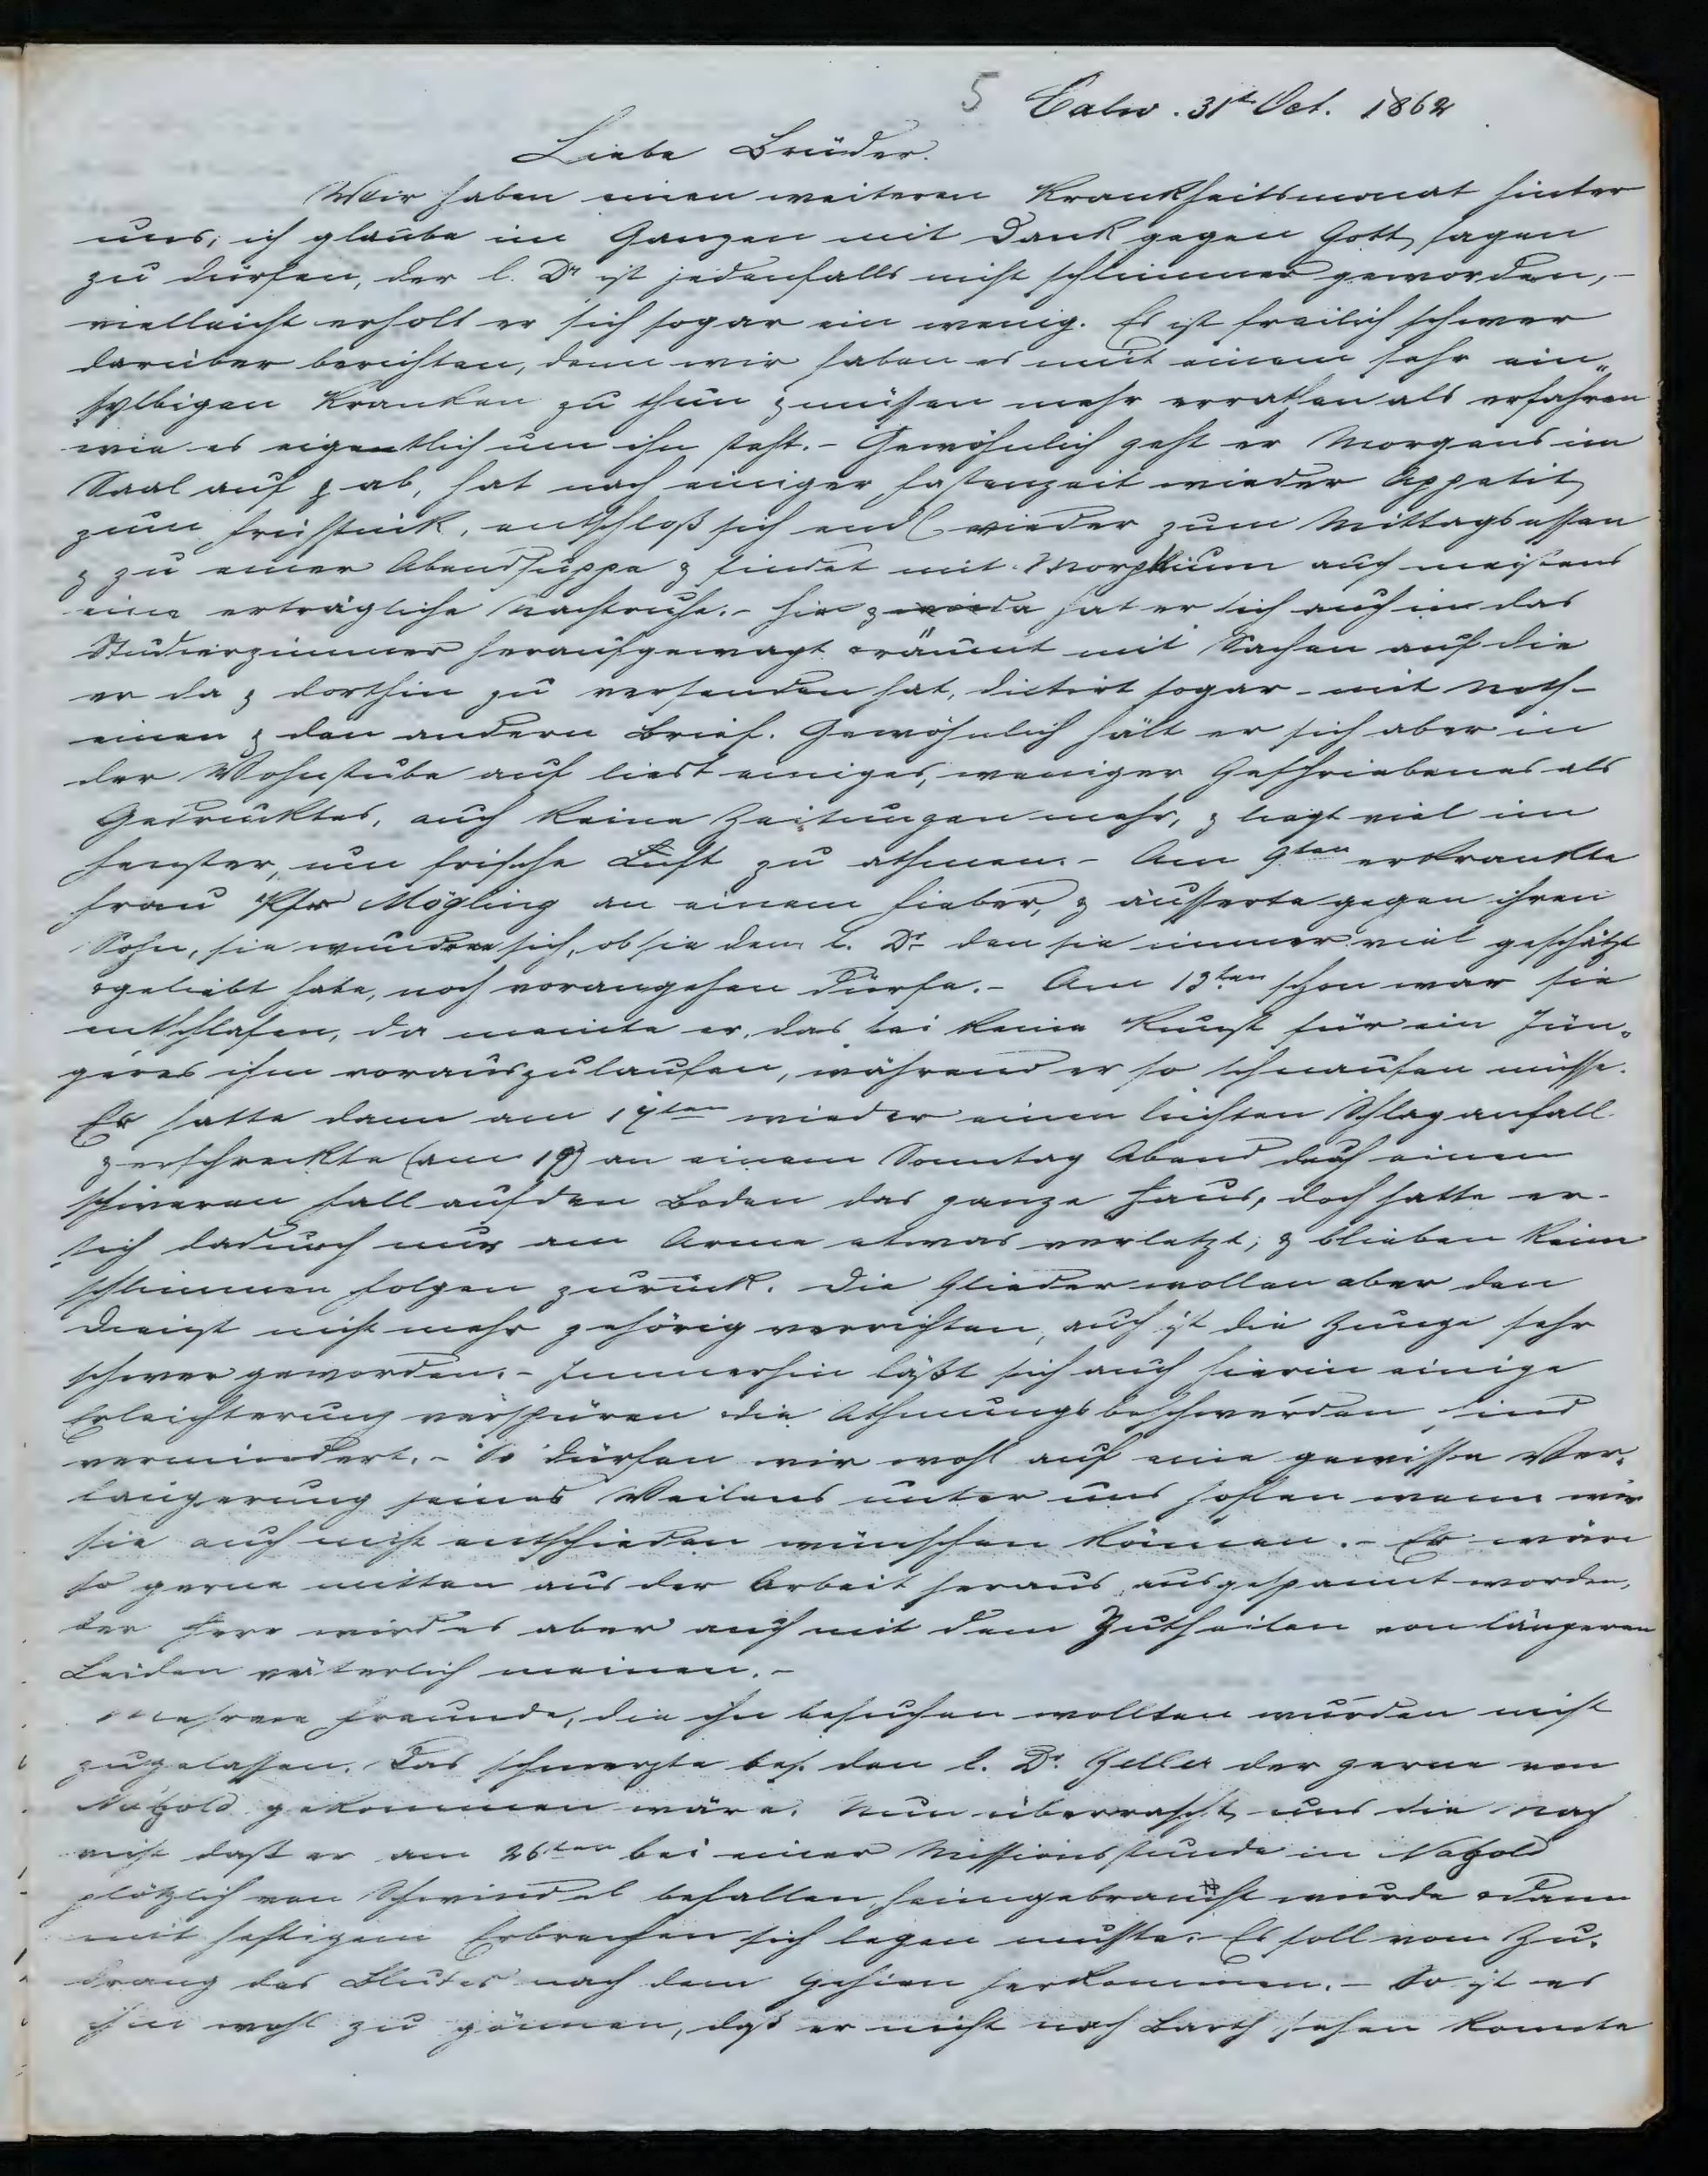 5 Calw. 31st Oct. 1862
Liebe Brüder.
Wir haben einen weiteren Krankheitsmonat hinter
uns; ich glaube im Ganzen mit Dank gegen Gott sagen
zu dürfen, der l. Dr ist jedenfalls nicht schlimmer geworden, -
vielleicht erholt er sich sogar ein wenig. Es ist freilich schwer
darüber berichten, denn wir haben es mit einem sehr ein„
sylbigen Kranken zu thun & müssen mehr errathen als erfahren
wie es eigentlich um ihn steht. - Gewöhnlich geht er Morgens im
Saal auf & ab, hat nach einiger Fastenzeit wieder Appetit
zum Frühstück, entschloß sich endl wieder zum Mittagsessen
& zu einer Abendsuppe & findet mit Morphium auch meistens
eine erträgliche Nachtruhe. - Hie & da hat er sich auch in das
Studierzimmer heraufgewagt & räumt mit Sachen auf die
er da & dorthin zu versenden hat, dictirt sogar - mit Noth -
einen & den andern Brief. Gewöhnlich hält er sich aber in
der Wohnstube auf liest einiges, weniger Geschriebenes als
Gedrucktes, auch keine Zeitungen mehr, & liegt viel im
Fenster, um frische Luft zu athmen. - Am 9ten erkrankte
Frau Pfr Mögling an einem Fieber, & äusserte gegen ihren
Sohn, sie wundere sich, ob sie dem l. Dr den sie immer viel geschätzt
& geliebt habe, noch vorangehen dürfe. - Am 13ten schon war sie
entschlafen, da meinte er, das sei keine Kunst für ein Jün„
geres ihm vorauszulaufen, während er so schnaufen müsse.
Er hatte dann am 17ten wieder einen leichten Schlaganfall
& erschreckte (am 19) an einem Sonntag Abend durch einen
schweren Fall auf den Boden das ganze Haus, doch hatte er
sich dadurch nur am Arme etwas verletzt; & blieben keine
schlimmen Folgen zurück. Die Glieder wollen aber den
Dienst nicht mehr gehörig verrichten, auch ist die Zunge sehr
schwer geworden. - Immerhin läßt sich auch hierin einige
Erleichterung verspüren & die Athmungsbeschwerden sind
vermindert. - So dürfen wir wohl auf eine gewisse Ver„
längerung seines Weilens unter uns hoffen wenn wir
sie auch nicht entschieden wünschen können. - Er wäre
so gerne mitten aus der Arbeit heraus ausgespannt worden,
der Herr wird es aber auch mit dem Zutheilen von längeren
Leiden väterlich meinen. -
Mehrere Freunde, die ihn besuchen wollten wurden nicht
zugelassen. Das schmerzte bes. den l. Dr. Zeller der gerne von
Nagold gekommen wäre. Nun überrascht uns die Nach
richt daß er am 26ten bei einer Missionsstunde in Nagold
plötzlich von Schwindel befallen heimgebracht wurde & dann
mit heftigem Erbrechen sich legen mußte. Es soll vom Zu„
drang des Blutes nach dem Gehirn herkommen. - So ist es
ihm wohl zu gönnen, daß er nicht nach Barth sehen konnte